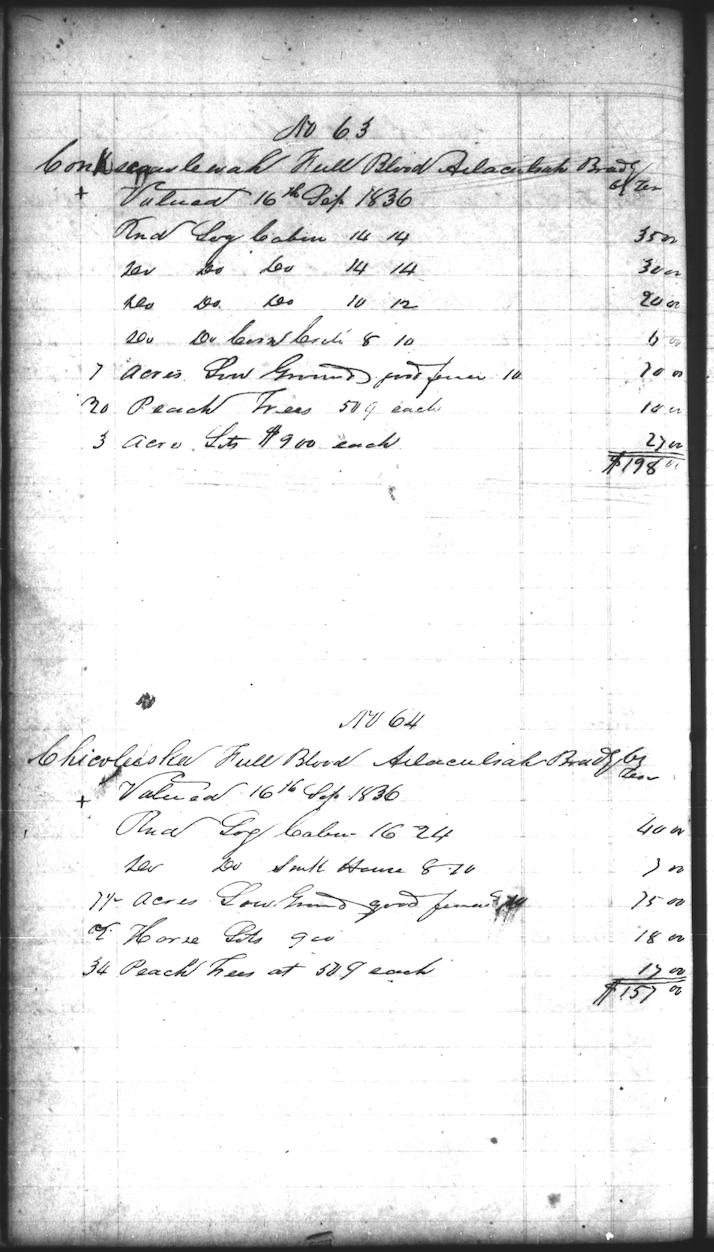 No 63
Full Blood Bradly
Cty Ten
+ Valued 16th Sep 1836
Rnd Log Cabin 14 14 35 00
Do Do Do 14 14 30 00
Do Do Do 10 12 20 00
Do Do Corn Crib 8 10 6 00
7 acres Low Ground good fence 10 70 00
20 Peach Trees 50 ₵ each 10 00
3 acre Lots $9 00 each 27 00
$198 00
No 64
Full Blood Bradly Cty
Ten
+ Valued 16th Sep 1836
Rnd Log Cabin 16 24 40 00
Do Do Smk House 8 10 7 00
7½ acres Low Ground good fence 10 75 00
2 Horse Lots 9 00 18 00
34 Peach Trees at 50 ₵ each 17 00
$157 00